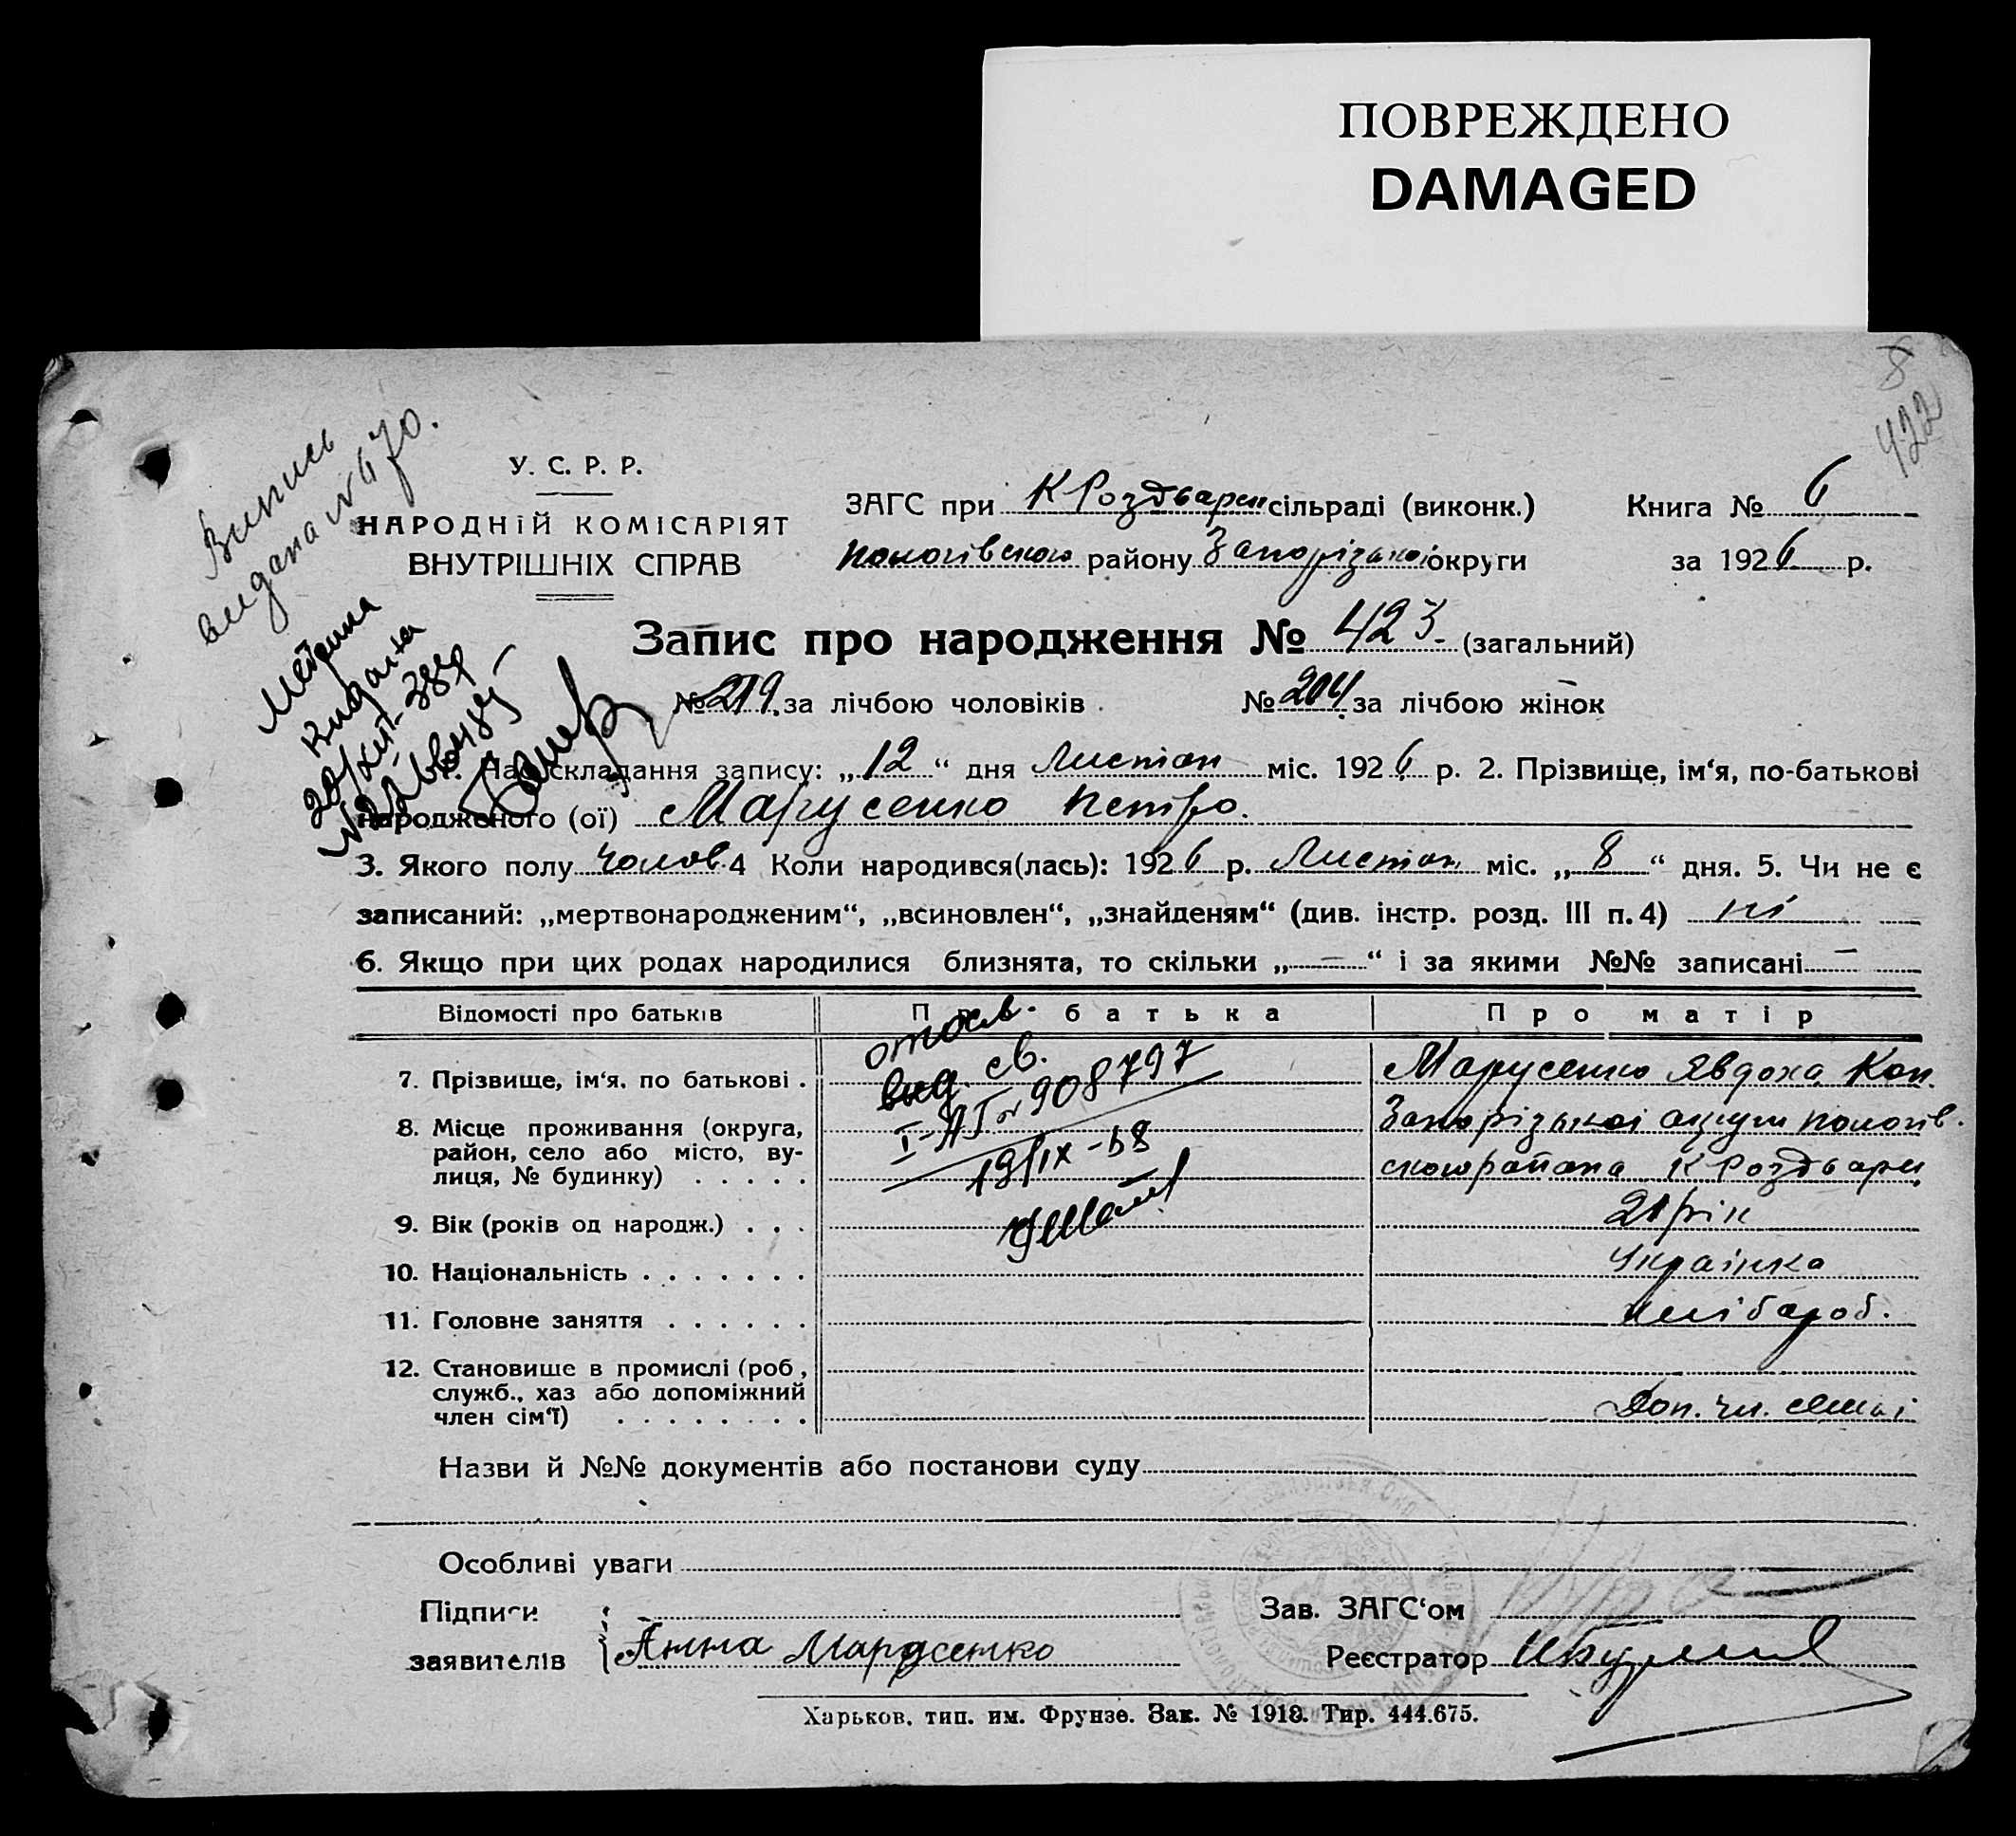 ПОВРЕЖДЕНО
DAMAGED
8
422
Випись
видана № 670.
У. С. Р. Р.
НАРОДНІЙ КОМІСАРІЯТ
ВНУТРІШНІХ СПРАВ
ЗАГС при К Роздварен сільраді (виконк.)
Книга № 6
Пологівського району Запорізької округи
за 1926 р.
Метрика
видана
Запис про народження № 423 (загальний)
№ 219 за лічбою чоловіків
№ 204 за лічбою жінок
складання запису: „12“ дня Листоп міс. 1926 р. 2. Прізвище, ім‘я, по-батькові
народженого (ої) Марусенко Петро.
3. Якого полу чолов. 4 Коли народився(лась): 1926 р. Листоп міс. „8“ дня. 5. Чи не є
записаний: „мертвонародженим“, „всиновлен“, „знайденям“ (див. інстр. розд. III п. 4) ні
6. Якщо при цих родах народилися близнята, то скільки „—“ і за якими №№ записані —
Відомості про батьків
Про батька
Про матір
7. Прізвище, ім‘я, по батькові .
Марусенко Явдоха Кон.
8. Місце проживання (округа,
район, село або місто, ву-
лиця, № будинку) . . . . .
Запорізької округи пологів.
ського района К Роздвари
повт.
выд. св.
I-АГ № 908797
19/IX-58
9. Вік (років од народж.) . . .
21 рік
10. Національність . . . . . . .
Українка
11. Головне заняття . . . . . .
хлібороб.
12. Становище в промислі (роб.,
служб., хаз або допоміжний
член сім‘ї) . . . . . . . .
Доп. чл. сем'ї
Назви й №№ документів або постанови суду
Особливі уваги
Підписи
заявителів
Анна Марусенко
Зав. ЗАГС‘ом
Реєстратор
Харьков, тип. им. Фрунзе. Зак. № 1918. Тир. 444.675.